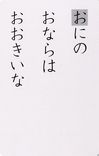 おにの
おならは
おおきいな